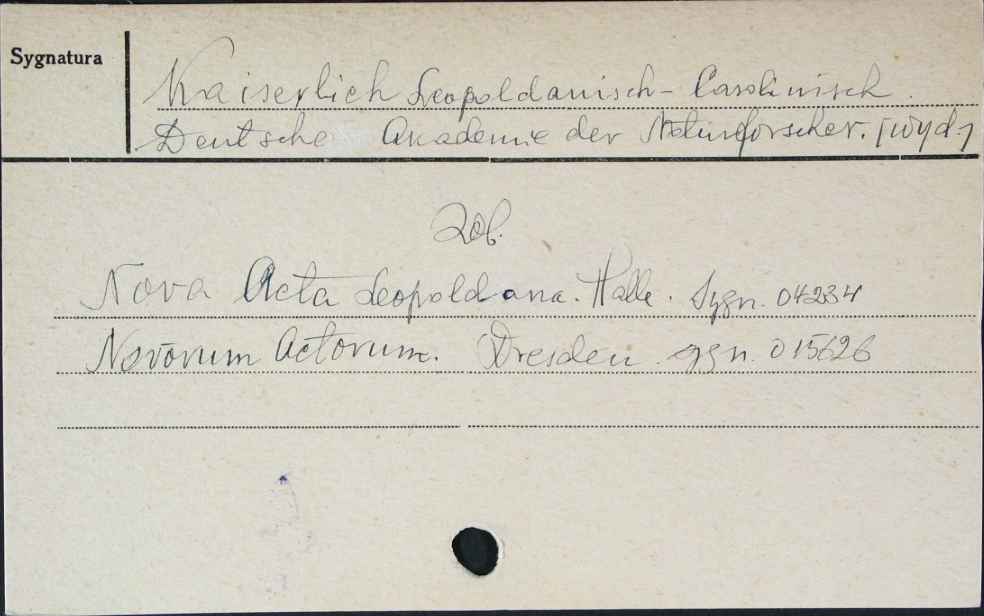 Sygnatura
Kaiserlich Leopoldanisch - Carolinisch.
Deutsche Akademie der Naturforscher. [wyd.]
Zob.
Nova Acta Leopoldana. Halle. Sygn. 04234
Novorum Actorum. Dresden. sygn. 015626